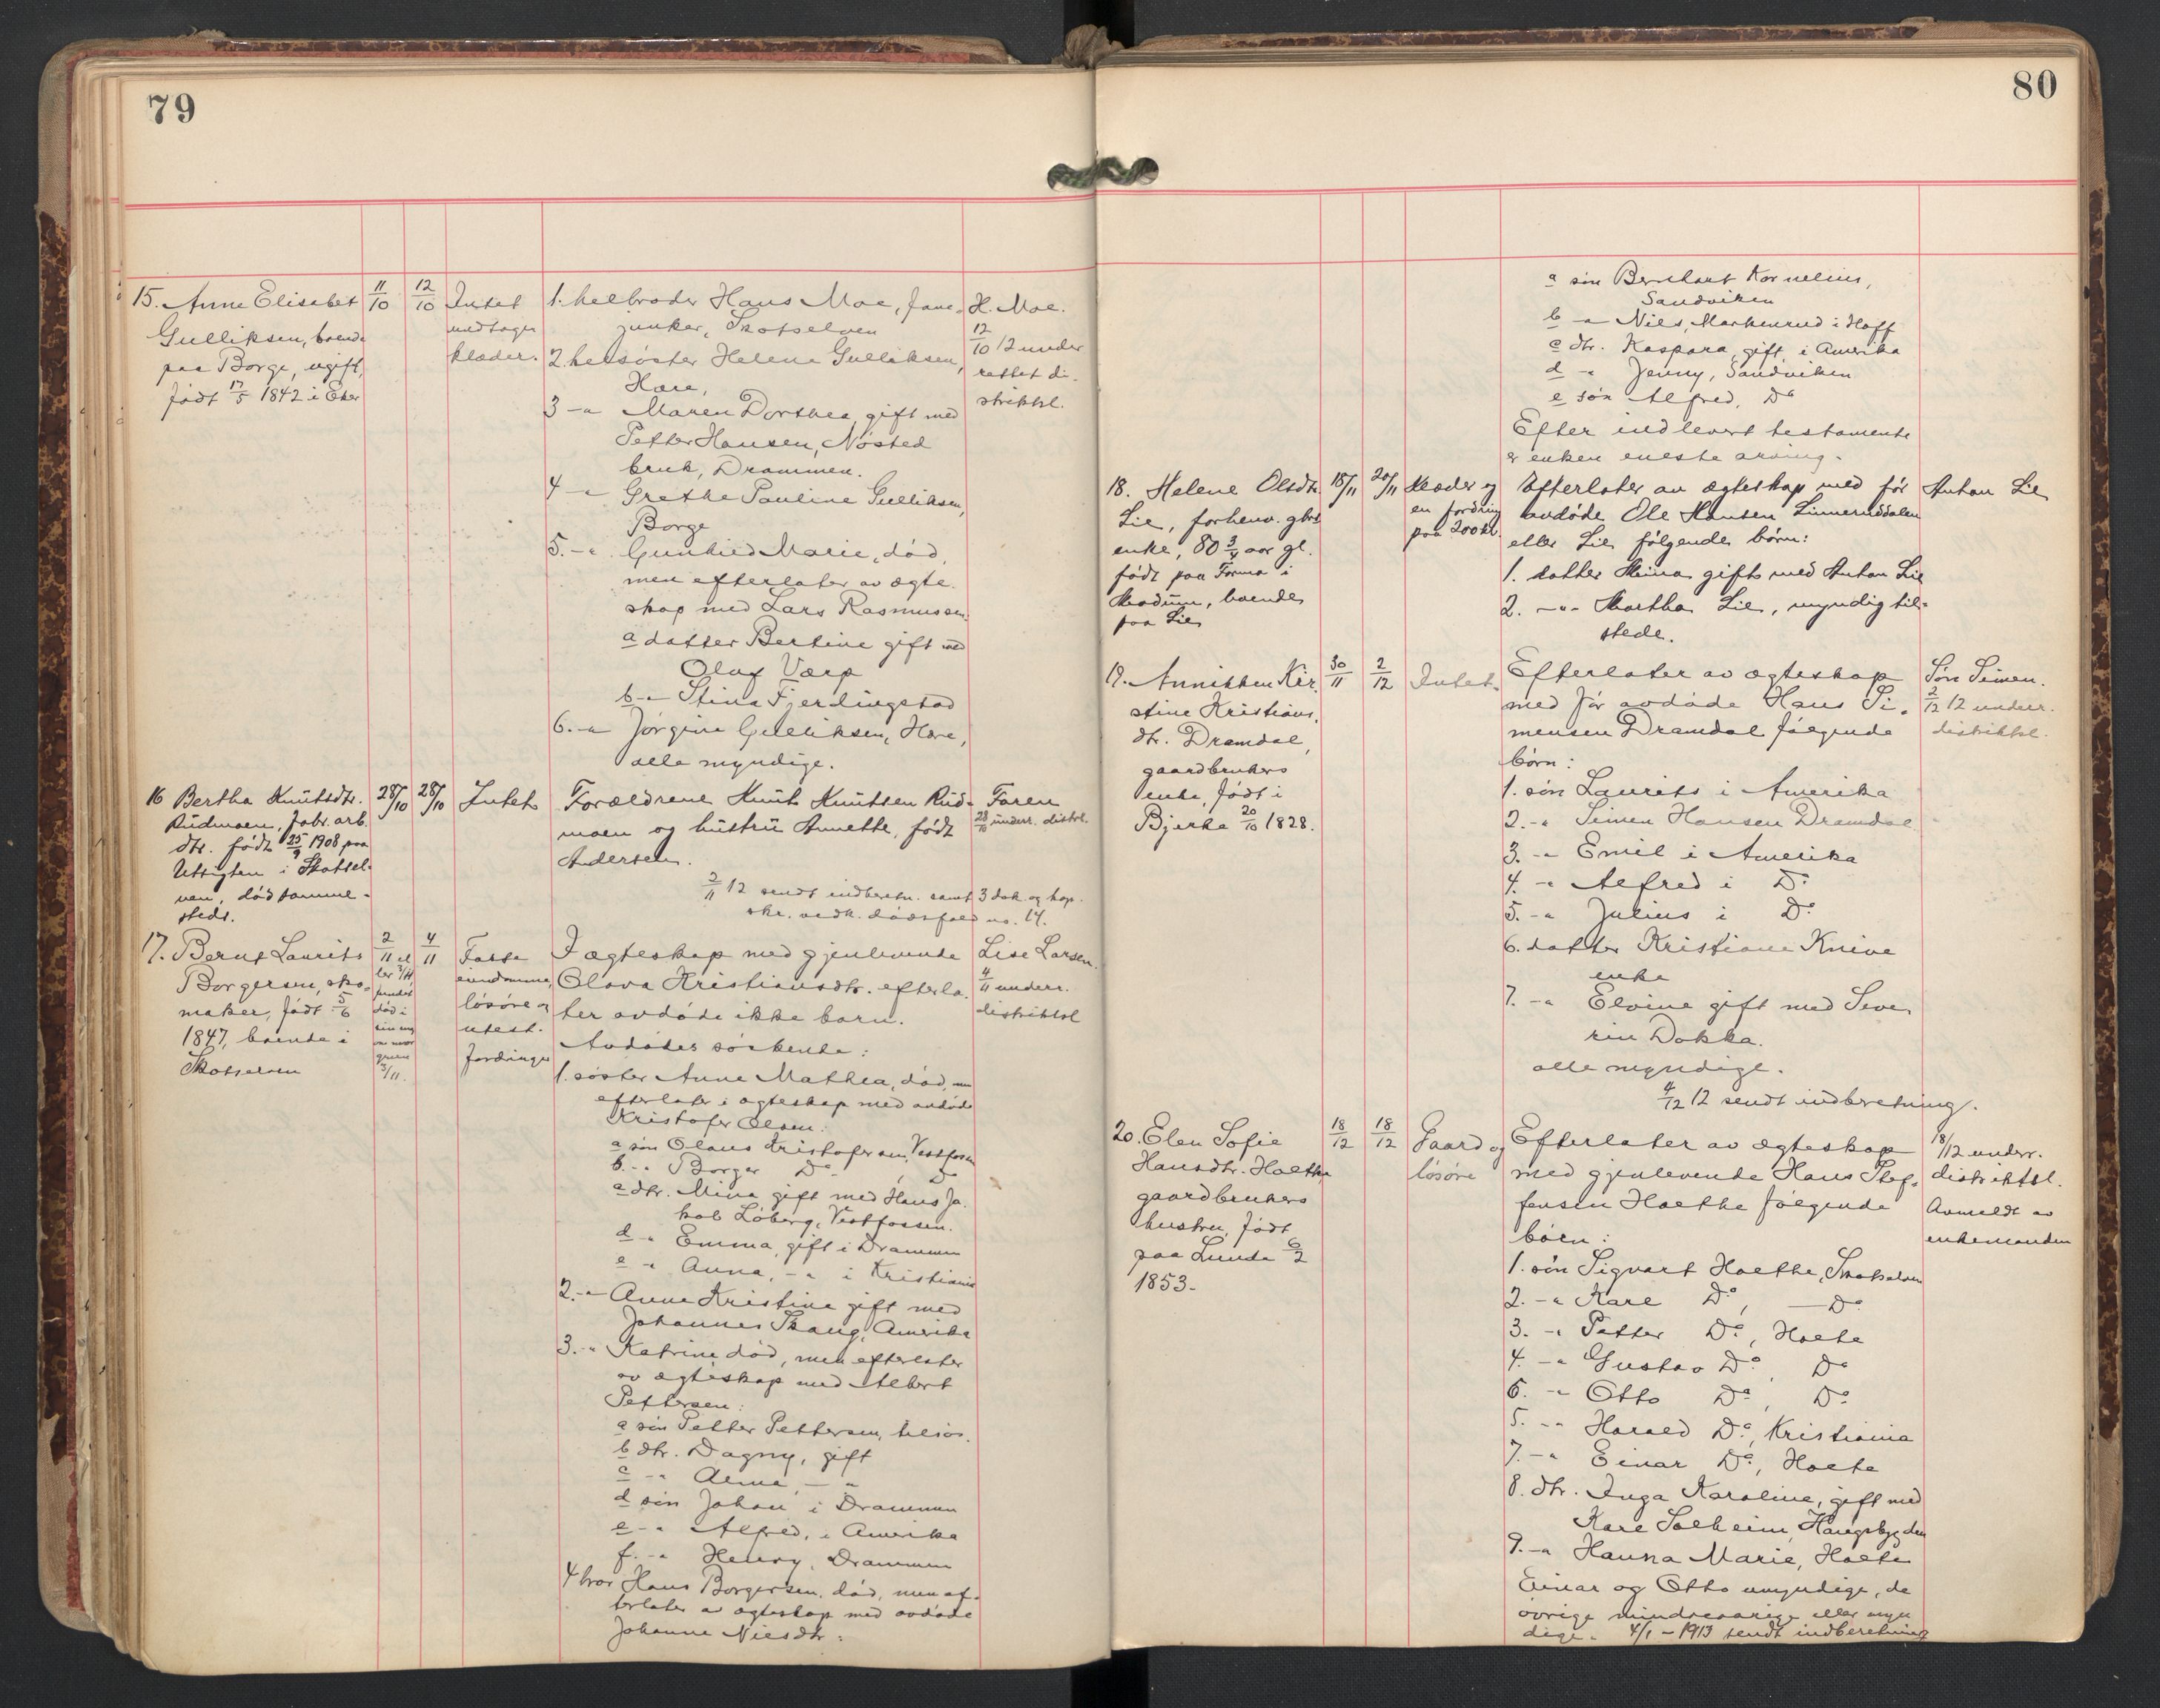 79
15. Anne Elisabet
Gulliksen, boende
paa Borge, ugift,
født 17/5 1842 i Eker
11/10
12/10
Intet
undtagen
klæder.
1. helbroder Hans Moe, fane-
junker, Skotselven
2. helsøster Helene Gulliksen,
Hære,
3 -"- Maren Dorthea, gift med
Petter Hansen, Nøsted
bruk, Drammen.
4 -"- Grethe Pauline Gulliksen,
Borge
5. -"- Gunhild Marie, død,
men efterlater av ægte-
skap med Lars Rasmussen:
a datter Bertine gift med
Olaf Værp
b -"- Stina Fjerdingstad
6. -"- Jørgine Gulliksen, Hære,
alle myndige.
H. Moe.
12/10 12 under
rettet di-
striktsl.
16 Bertha Knutsdtr.
Rudmoen, fabr. arb.
dtr. født 25/9 1908 paa
i Skotsel-
ven, død samme-
steds.
28/10
28/10
Intet
Forældrene Knut Knutsen Rud-
moen og hustru Annette, født
Andersen.
2/11 12 sendt indberetn. samt 3 dok. og
vedk. dødsfald no. 14.
Faren
28/10 underr. distrl.
17. Bernt Laurits
Borgersen, sko-
maker, født 5/6
1847, boende i
Skotselven
2/11 el
ler 3/11
fundet
død i
sin
3/11.
4/11
Faste
eiendomme,
løsøre og
utest.
fordringer
I ægteskap med gjenlevende
Olava Kristiansdtr. efterla-
ter avdøde ikke barn.
Avdødes søskende:
1. søster Anne Mathea, død, men
efterlater i ægteskap med avdøde
Kristofer Olsen:
a søn Olaus Kristofersen, Vestfossen
b. -"- Borger Do, Do
c dtr. Mina gift med Hans Ja-
kob Løberg, Vestfossen.
d -"- Emma, gift i Drammen
e -"- Anna, -"- i Kristiania
2. -"- Anne Kristine gift med
Johannes Skaug, Amerika
3. -"- Katrine død, men efterlater
av ægteskap med Albert
Pettersen:
a søn Petter Pettersen, tilsjøs.
b dtr. Dagny, gift
c -"- Alma, -"-
d søn Johan i Drammen
e -"- Alfred, i Amerika
f. -"- Henry, Drammen
4 bror Hans Borgersen, død, men ef-
terlater av ægteskap med avdøde
Johanne Nilsdtr:
Lise Larsen.
4/11 underr.
distriktsl
80
a søn Bernhart Kornelius,
Sandviken
b -"- Nils, i Hoff
c dtr. Kaspara, gift i Amerika
d -"- Jenny, Sandviken
e søn Alfred, Do
Efter indlevert testamente
er enken eneste arving.
18. Helene Olsdtr.
Lie, forhenv. gbr.
enke, 80 3/4 aar gl.
født paa i
Modum, boende
paa Lie
18/11
20/11
Klæder og
en fordring
paa 200 kr.
Efterlater av ægteskap med før
avdøde Ole Hansen Linneruddalen
eller Lie følgende børn:
1. datter Mina gift med Anton Lie
2. -"- Martha Lie, myndig til-
stede.
Anton Lie
19. Annikken Kir-
stine Kristians-
dtr. Dramdal,
gaardbrukers
enke, født i
Bjerke 20/10 1828.
30/11
2/12
Intet.
Efterlater av ægteskap
med før avdøde Hans Si-
mensen Dramdal følgende
børn:
1. søn Laurits i Amerika
2. -"- Simen Hansen Dramdal
3. -"- Emil i Amerika
4. -"- Alfred i Do
5. -"- Julius i Do
6. datter Kristiane Knive
enke
7. -"- Elvine gift med Seve-
rin Dokka.
alle myndige.
4/12 12 sendt indberetning.
Søn Simen.
2/12 12 underr.
distriktsl.
20. Elen Sofie
Hansdtr.Holthe
gaardbrukers
hustru, født
paa Lunde 6/2
1853.
18/12
18/12
Gaard og
løsøre
Efterlater av ægteskap
med gjenlevende Hans Stef-
fensen Holthe følgende
børn:
1. søn Sigvart Holthe, Skotselven
2. -"- Karl Do, — Do
3. -"- Petter Do, Holte
4. -"- Gustav Do, Do
6. -"- Otto Do, Do
5. -"- Harald Do, Kristiania
7. -"- Einar Do, Holte
8. dtr. Inga Karoline, gift med
Karl Solheim, Haugsbygden
9. -"- Hanna Marie, Holte
Einar og Otto umyndige, de
øvrige mindreaarige eller myn
dige. 4/1 - 1913 sendt indberetning
18/12 underr.
distriktsl.
Anmeldt av
enkemanden